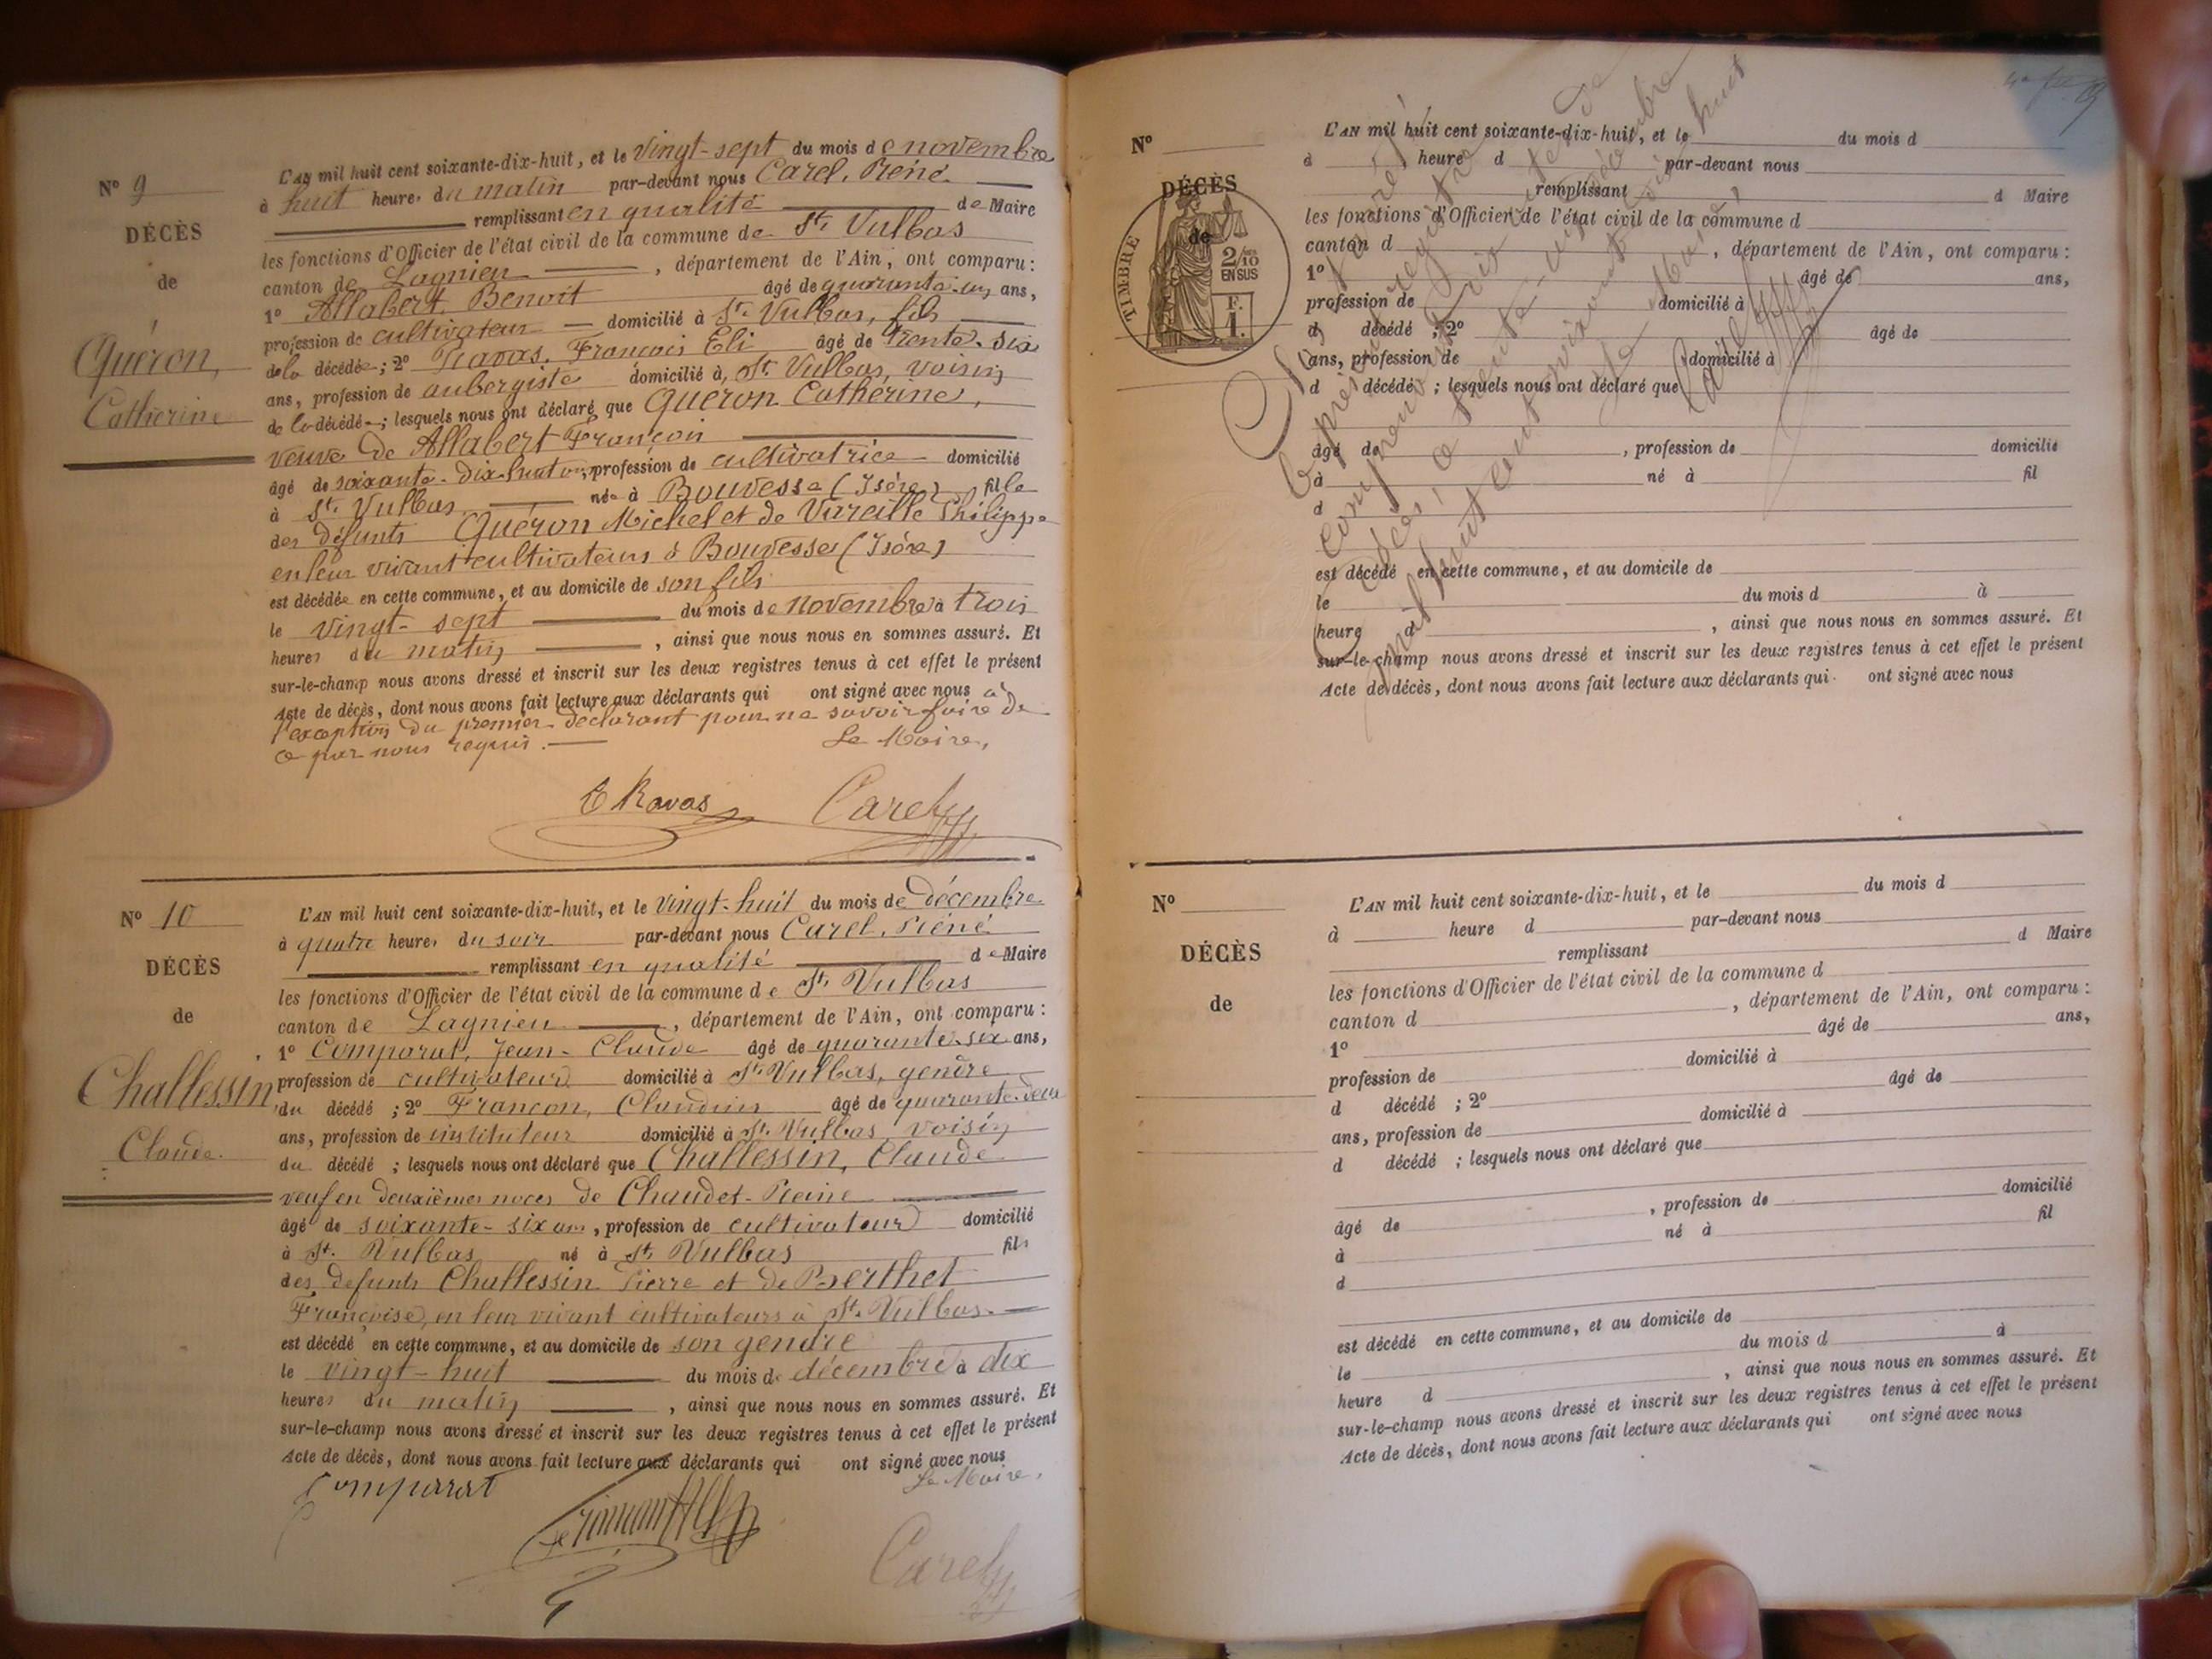 N° 9
DÉCÈS
de
Quéron,
Catherine
L'AN mil huit cent soixante-dix-huit, et le vingt-sept du mois de novembre
à huit heures du matin par-devant nous Carel, Réné
remplissant en qualité de Maire
les fonctions d'Officier de l'état civil de la commune de St Vulbas
canton de Lagnieu, département de l'Ain, ont comparu :
1° Allabert, Benoit âgé de quarante-un ans,
profession de cultivateur domicilié à St. Vulbas, fils
de la décédée ; 2° Ravas, François Eli âgé de trente-six
ans, profession de aubergiste domicilié à St. Vulbas, voisin
de la décédée ; lesquels nous ont déclaré que Quéron Catherine,
veuve de Allabert François
âgé de soixante-dix-huit ans, profession de cultivatrice domicilié
à St. Vulbas née à Bouvesse (Isère) fille
des défunts Quéron Michel et de Vareille Philippe
en leur vivant cultivateurs à Bouvesse (Isère)
est décédée en cette commune, et au domicile de son fils
le vingt-sept du mois de novembre à trois
heures du matin, ainsi que nous nous en sommes assuré. Et
sur-le-champ nous avons dressé et inscrit sur les deux registres tenus à cet effet le présent
Acte de décès, dont nous avons fait lecture aux déclarants qui ont signé avec nous à
l'exception du premier déclarant pour ne savoir faire de
ce par nous requis. Le Maire,
E Ravas Carel
N° 10
DÉCÈS
de
Challessin
Claude.
L'AN mil huit cent soixante-dix-huit, et le vingt-huit du mois de décembre
à quatre heures du soir par-devant nous Carel, Réné
remplissant en qualité de Maire
les fonctions d'Officier de l'état civil de la commune de St. Vulbas
canton de Lagnieu, département de l'Ain, ont comparu :
1° Comparat, Jean-Claude âgé de quarante-six ans,
profession de cultivateur domicilié à St. Vulbas, gendre
du décédé ; 2° Françon, Claudius âgé de quarante-deux
ans, profession de instituteur domicilié à St. Vulbas voisin
du décédé ; lesquels nous ont déclaré que Challessin, Claude
veuf en deuxièmes noces de Chaudet-Reine
âgé de soixante-six ans, profession de cultivateur domicilié
à St. Vulbas né à St. Vulbas fils
des défunts Challessin Pierre et de Berthet
Françoise, en leur vivant cultivateurs à St. Vulbas.
est décédé en cette commune, et au domicile de son gendre
le vingt-huit du mois de décembre à dix
heures du matin, ainsi que nous nous en sommes assuré. Et
sur-le-champ nous avons dressé et inscrit sur les deux registres tenus à cet effet le présent
Acte de décès, dont nous avons fait lecture aux déclarants qui ont signé avec nous
Comparat Le Maire,
Carel
N°
DÉCÈS
de
TIMBRE
2/10
EN SUS
F.
1.
L'AN mil huit cent soixante-dix-huit, et le du mois d
à heure d par-devant nous
remplissant d Maire
les fonctions d'Officier de l'état civil de la commune d
canton d , département de l'Ain, ont comparu :
1° âgé de ans,
profession de domicilié à
d décédé ; 2° âgé de
ans, profession de domicilié à
d décédé ; lesquels nous ont déclaré que
âgé de , profession de domicilié
à né à fil
d
est décédé en cette commune, et au domicile de
le du mois d à
heure d , ainsi que nous nous en sommes assuré. Et
sur-le-champ nous avons dressé et inscrit sur les deux registres tenus à cet effet le présent
Acte de décès, dont nous avons fait lecture aux déclarants qui ont signé avec nous
Le Maire,
Carel
N°
DÉCÈS
de
L'AN mil huit cent soixante-dix-huit, et le du mois d
à heure d par-devant nous
remplissant d Maire
les fonctions d'Officier de l'état civil de la commune d
canton d , département de l'Ain, ont comparu :
1° âgé de ans,
profession de domicilié à
d décédé ; 2° âgé de
ans, profession de domicilié à
d décédé ; lesquels nous ont déclaré que
âgé de , profession de domicilié
à né à fil
d
est décédé en cette commune, et au domicile de
le du mois d à
heure d , ainsi que nous nous en sommes assuré. Et
sur-le-champ nous avons dressé et inscrit sur les deux registres tenus à cet effet le présent
Acte de décès, dont nous avons fait lecture aux déclarants qui ont signé avec nous